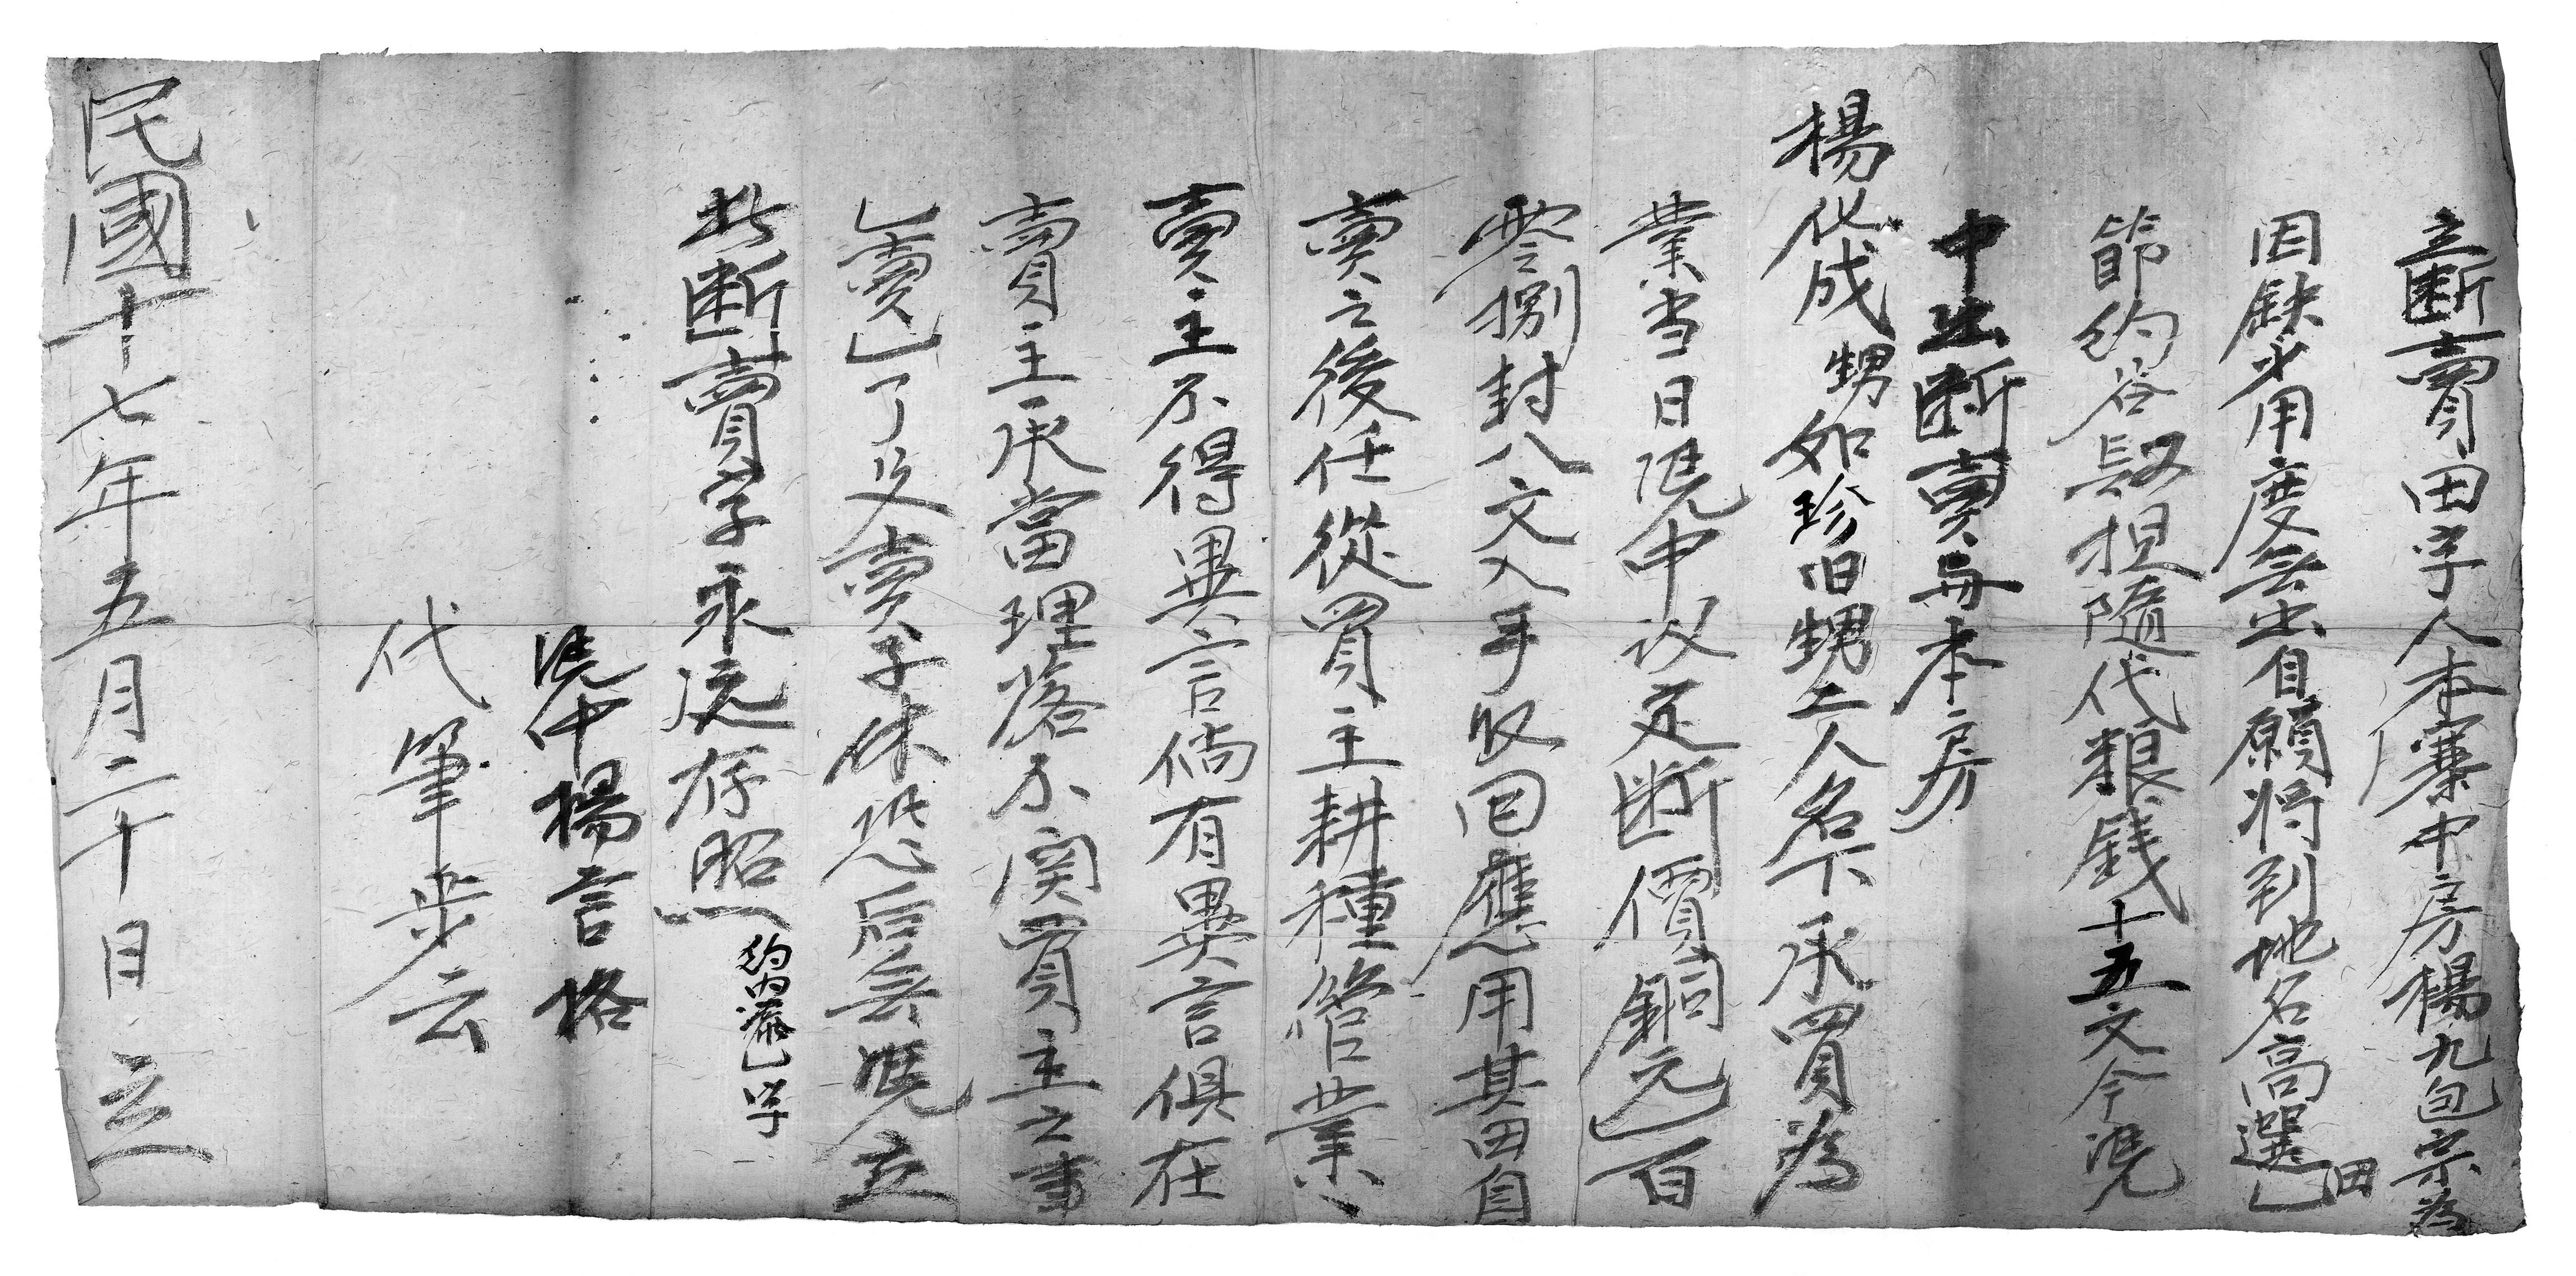 立断賣田字人本寨中房楊九包㝉為
因缺少用度無出自願將到地名高選田乙
節約谷叚担隨代粮銭十五文今凴
中出断賣與本房
楊化成甥如珍旧甥二人名下承買為
業当日凴中议定断價銅元乙百
零捌封八文入手收回應用其田自
賣之後任從買主耕種管業
賣主不得異言倘有異言俱在
賣主承當理落不関買主之事
乙賣乙了父賣子休恐后無凴立
此断賣字永远存照
約内添乙字
凴中楊言格
代筆步云
民國十七年五月二十日立